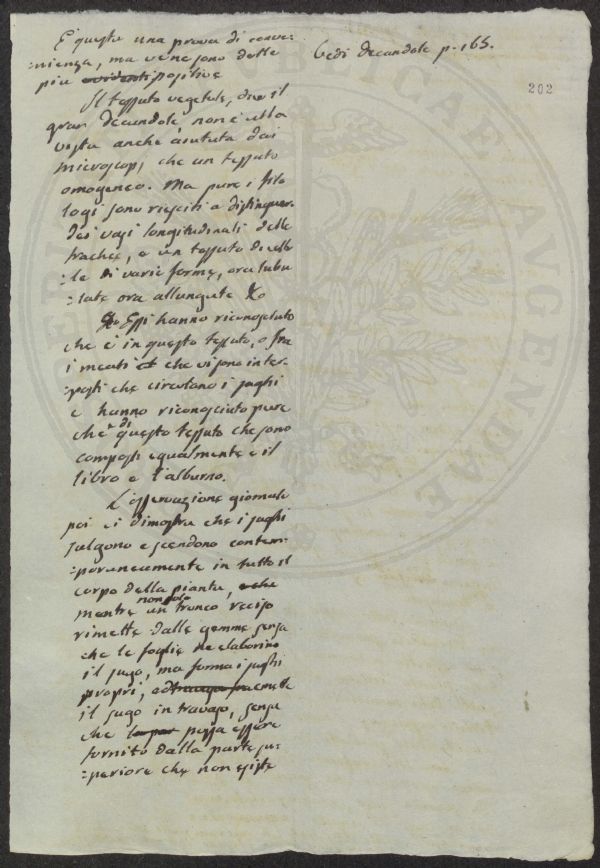 E questa una prova di conve-
:nienza, ma ve ne sono delle
più evidenti positive
Vedi Decandole p. 165.
202
Il tessuto vegetale, dice il
gran Decandole non è alla
vista anche aiutata dai
microscopj che un tessuto
omogeneo. Ma pure i fito
logi sono riesciti a distinguer
dei vasi longitudinali delle
trachee, e un tessuto di cellu
:le di varie forme, ora tubu
:late ora allungate
Essi hanno riconosciuto
che è in questo tessuto, o fra
i meati che vi sono inter-
:posti che circolano i sughi
e hanno riconosciuto pure
che è di questo tessuto che sono
composti egualmente e il
libro e l'alburno.
L'osservazione giornale
poi ci dimostra che i sughi
salgono e scendono contem-
:poraneamente in tutto il
corpo della pianta, che
mentre non solo un tronco reciso
rimette dalle gemme senza
che le foglie ne elaborino
il sugo, ma forma i sughi
propri, ed emette
il sugo in travaso, senza
che possa essere
fornito dalla parte su-
:periore che non esiste